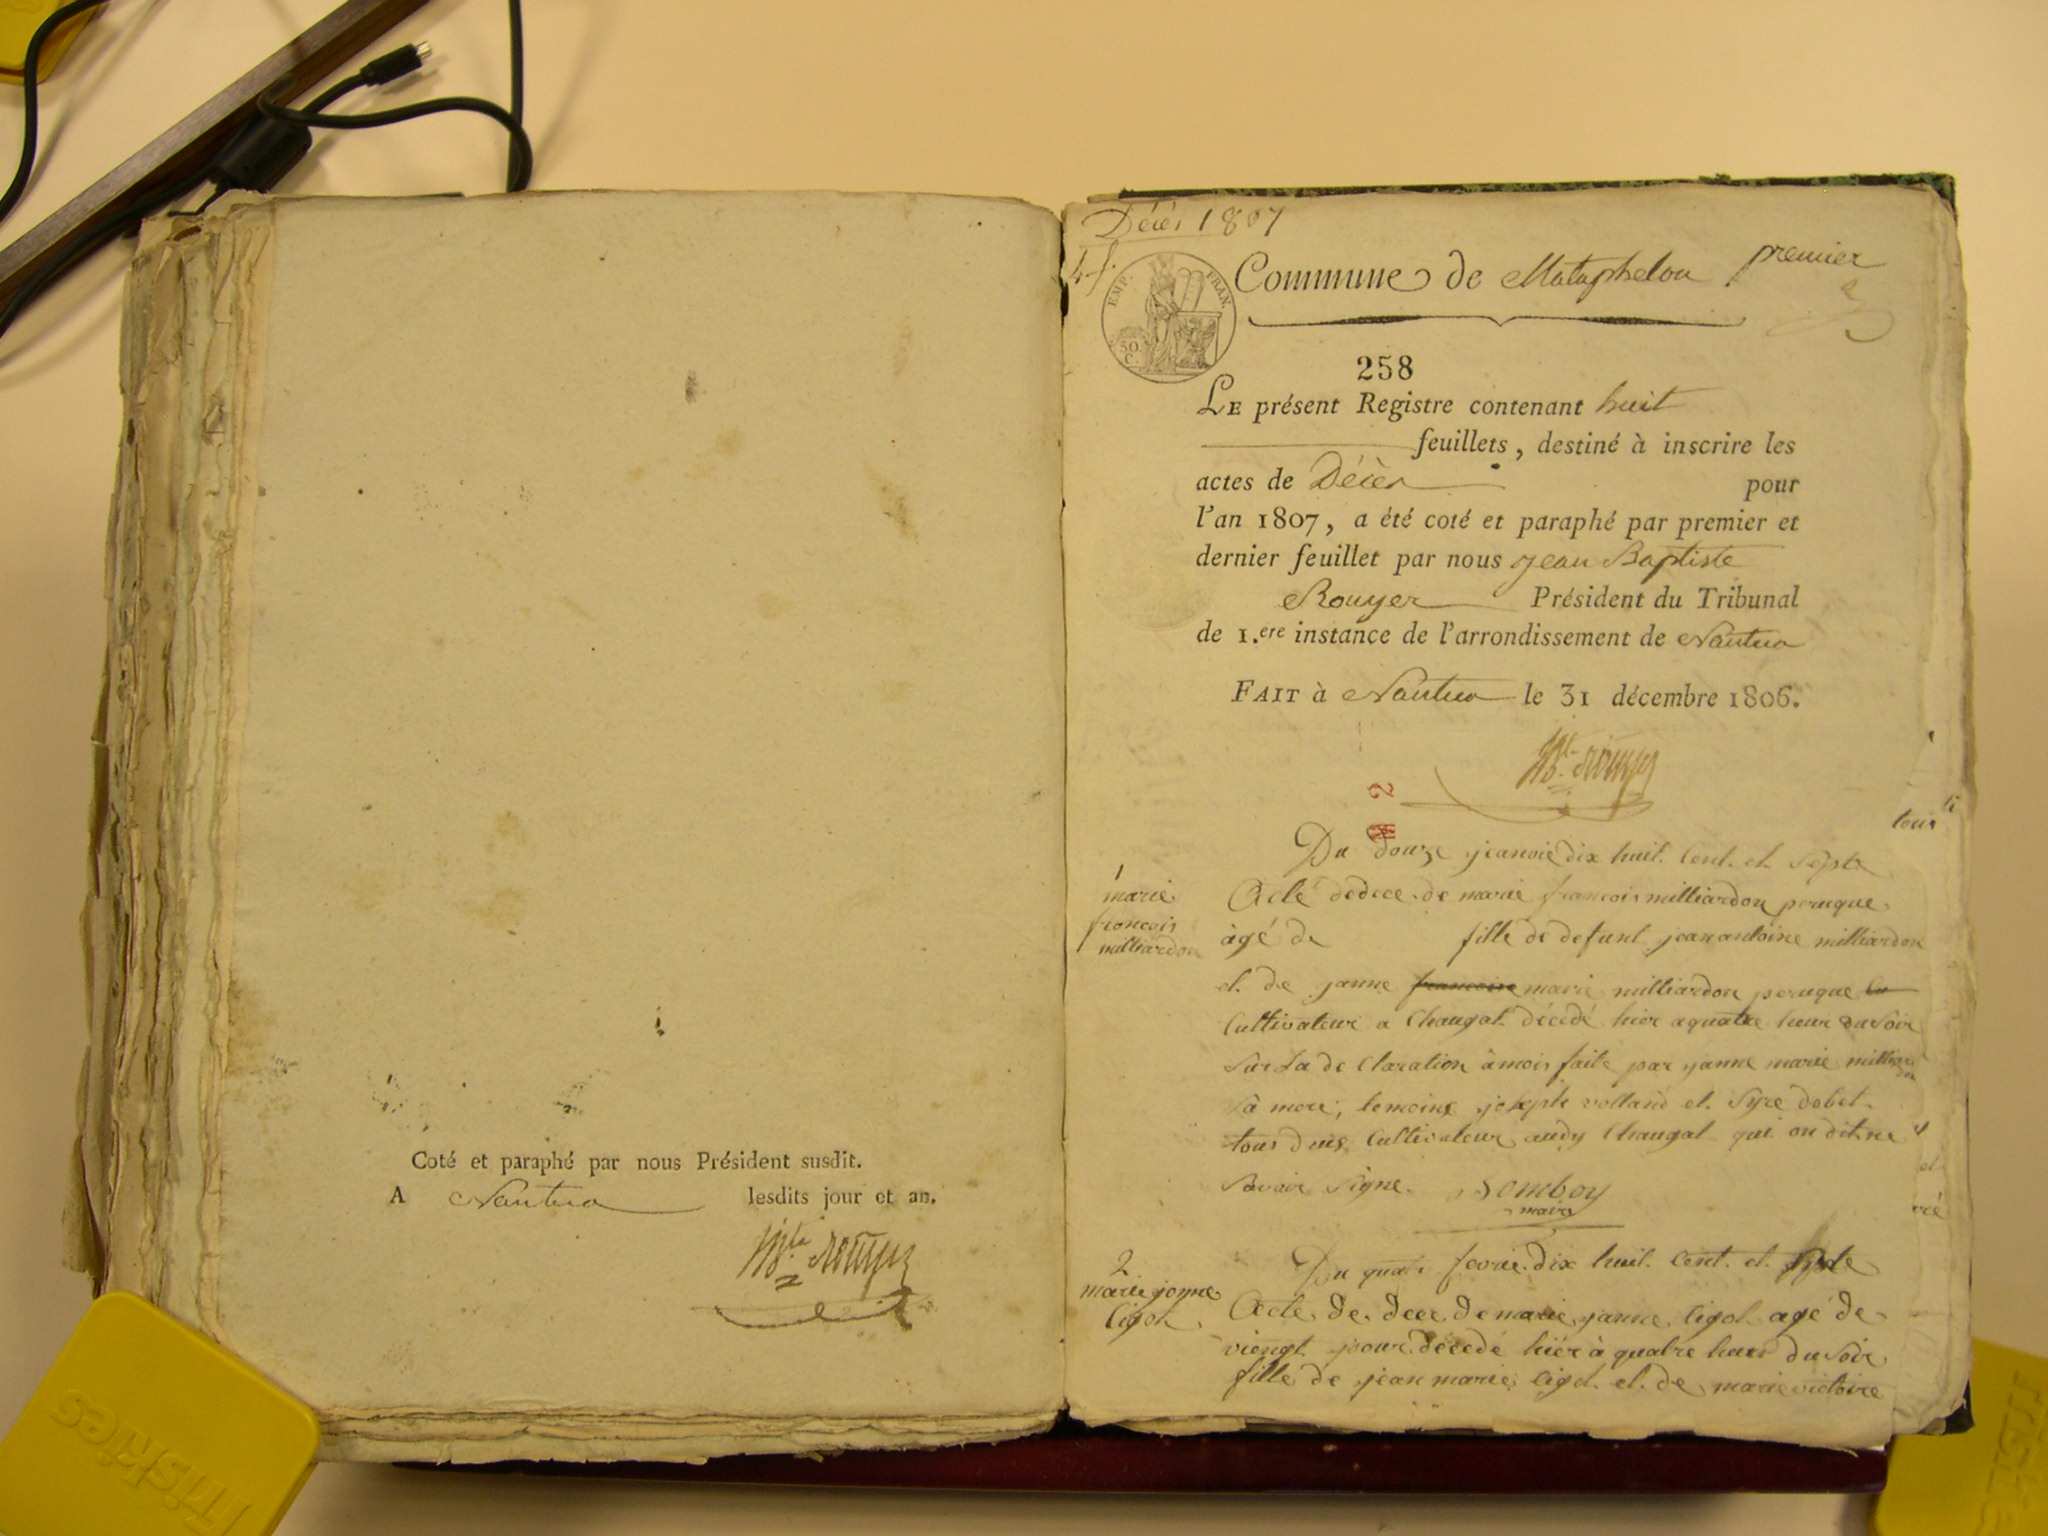 Coté et paraphé par nous Président susdit.
A Nantua lesdits jour et an.
Décès 1807
4 f.
EMP. FRAN.
50 C.
Commune de Mataphelon
premier
258
LE présent Registre contenant huit
feuillets, destiné à inscrire les
actes de Décès pour
l'an 1807, a été coté et paraphé par premier et
dernier feuillet par nous jean Baptiste
Rouyer Président du Tribunal
de 1.ere instance de l'arrondissement de Nantua
FAIT à Nantua le 31 décembre 1806.
Du douze janvie dix huit Cent et Septe
1
marie
francois
milliardon
Acte dedece de marie francois milliardon peruque
àgé de fille de defunt jean antoine milliardon
et de janne francoise marie milliardon peruque Cu
Cultivateur a Changat décédé hier a quatre heur du Soir
Sur La de Claration à moi faite par janne marie milliardon
Sa mere, temoins josephe volland et Syre dobet
tous deus Cultivateur audy Changat qui on dit ne
Savoir Signe. Domboy
maire
2
marie janne
Cigot
Du quatr fevrie dix huit Cent et Septe
Acte de decer de marie janne Cigot agé de
viengt jour décédé hiér à quatre heur du Soir
fille de jean marie Cigot et de marie victoire
tous
et
Triskies